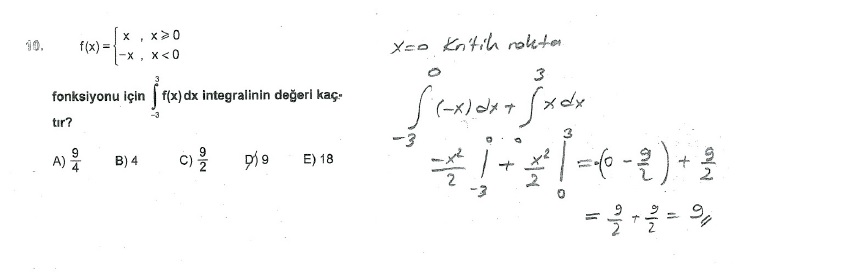 10. f(x) = { x , x ⩾ 0
-x , x < 0
fonksiyonu için ∫₋₃³ f(x) dx integralinin değeri kaç-
tır?
A) 9/4 B) 4 C) 9/2 D) 9 E) 18
x=0 Kritik nokta
∫₋₃⁰ (-x) dx + ∫³ x dx
-x²/2 |₋₃⁰ + x²/2 |₀³ = -(0 - 9/2) + 9/2
= 9/2 + 9/2 = 9//